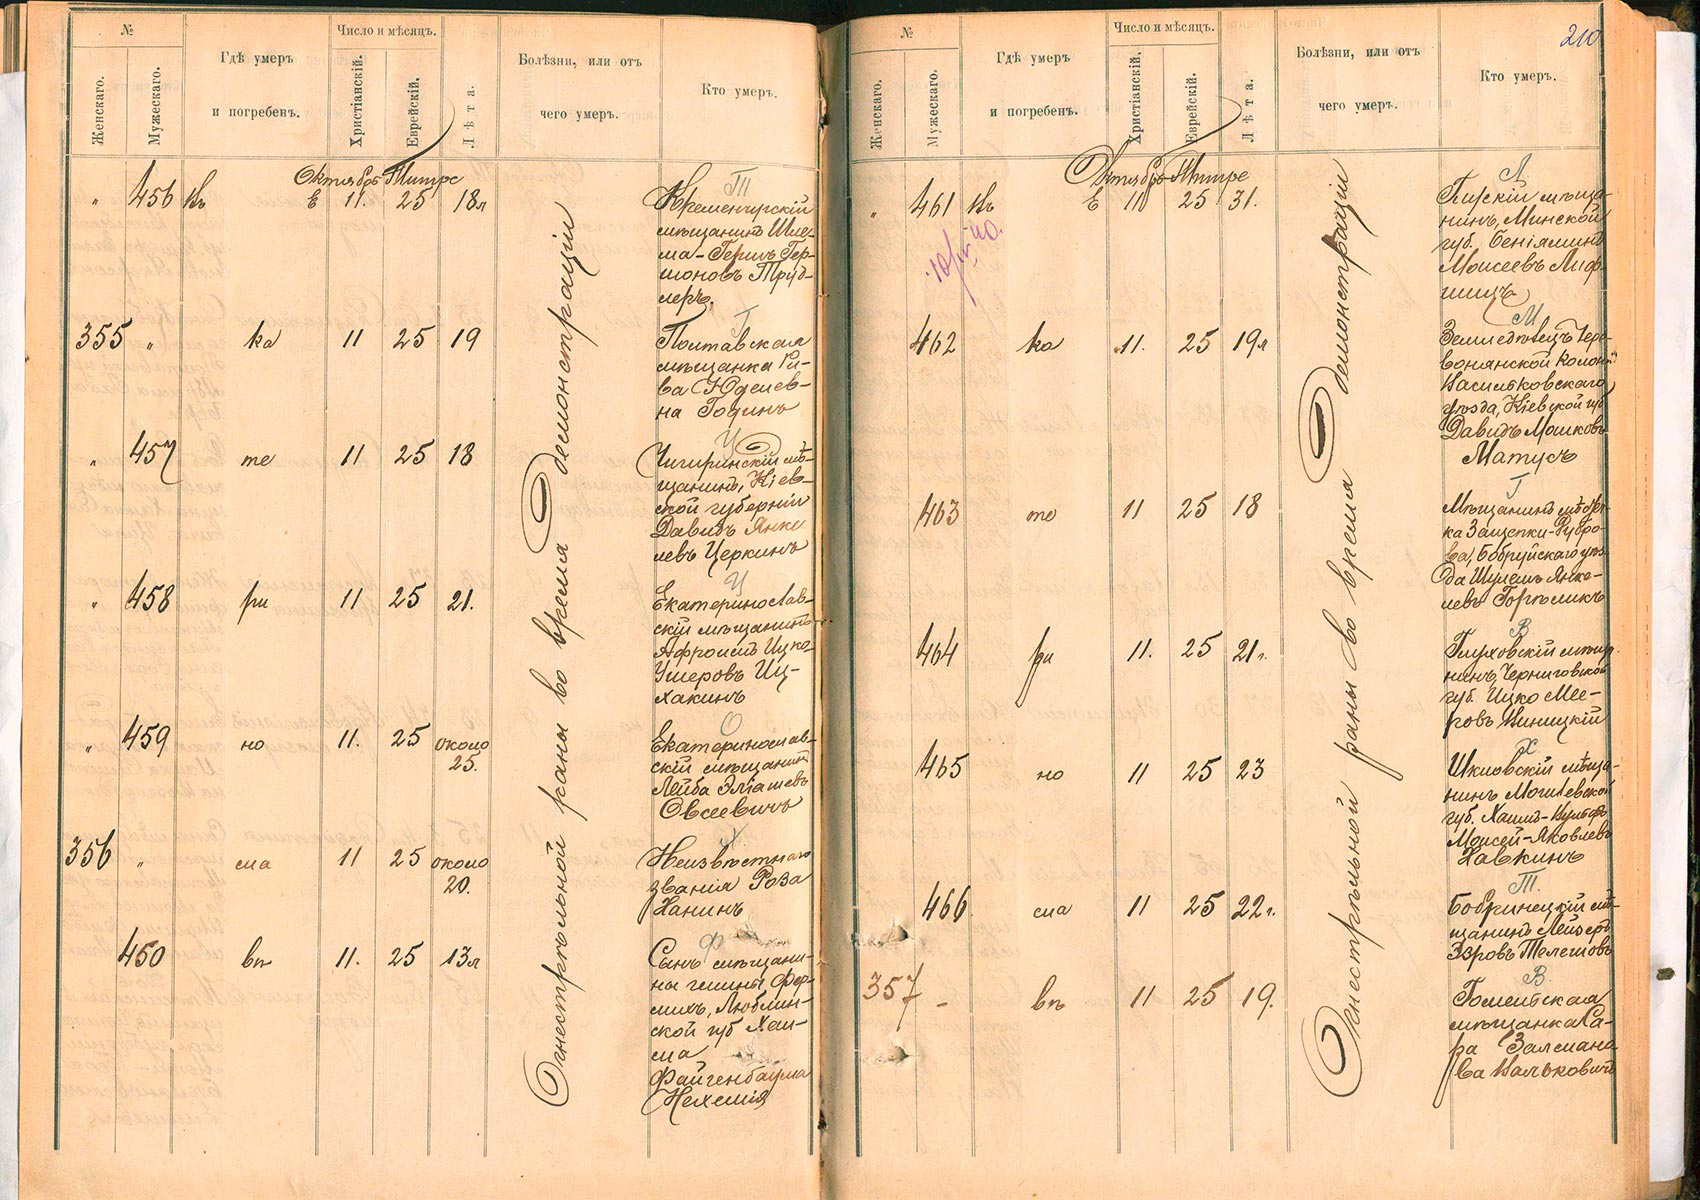 №
Женскаго.
Мужескаго.
Гдѣ умеръ
и погребенъ.
Число и мѣсяцъ.
Христіанскій.
Еврейскій.
Лѣта.
Болѣзни, или отъ
чего умеръ.
Кто умеръ.
Октября Тишре
Огнестрѣльной раны во время демонстраціи
" 456 Въ Е 11. 25 18л
Т
Кременчугскій
мѣщанинъ Шле-
ма-Гершъ Гер-
шоновъ Труд-
леръ.
355 " ка 11 25 19
Г
Полтавская
мѣщанка Ри-
ва Юделев-
на Годинъ
" 457 те 11 25 18
Ц
Чигиринскій мѣ-
щанинъ, Кіев-
ской губерніи
Давидъ Янке
левъ Церкинъ
" 458 ри 11 25 21.
Ц
Екатеринослав-
скій мѣщанинъ
Афроимъ Ицко
Ушеровъ Иц-
хакинъ
" 459 но 11. 25 около
25.
О
Екатеринослав-
скій мѣщанинъ
Лейба Эліашевъ
Овсеевичъ
356 " сла 11 25 около
20.
Х
Неизвѣстнаго
званія Роза
Ханинъ
450 въ 11. 25 13л
Ф
Сынъ мѣщани-
на гмины
Люблин-
ской губ Хаи-
ма
Файгенбаума
Нехемія
210
№
Женскаго.
Мужескаго.
Гдѣ умеръ
и погребенъ.
Число и мѣсяцъ.
Христіанскій.
Еврейскій.
Лѣта.
Болѣзни, или отъ
чего умеръ.
Кто умеръ.
Октября Тишре
Огнестрѣльной раны во время демонстраціи
" 461 Въ Е 11 25 31.
Л
мѣща-
нинъ, Минской
губ. Беніяминъ
Моисеевъ Лиф-
шицъ
462 ка 11. 25 19л
М
Земледѣлецъ Чер-
вонянской колон.
Васильковскаго
уѣзда, Кіевской губ
Давидъ Мошковъ
Матусъ
463 те 11 25 18
Г
Мѣщанинъ
ка
ва, Бобруйскаго уѣз-
да Шулемъ Янке-
левъ Горѣликъ
464 ри 11. 25 21г.
В
Глуховскій мѣща
нинъ, Черниговской
губ. Ицко Мее-
ровъ Виницкій
465 но 11 25 23
Х
Шкловскій мѣща-
нинъ Могилевской
губ. Хаимъ-Вульфъ
Моисей-Яковлевъ
Хавкинъ
466 сла 11 25 22г.
Т.
Бобринецкій мѣ-
щанинъ Лейзеръ
Эзровъ Телешовъ
357 - въ 11 25 19.
В.
Гомельская
мѣщанка Са-
ра Залмано
ва Вальковичъ